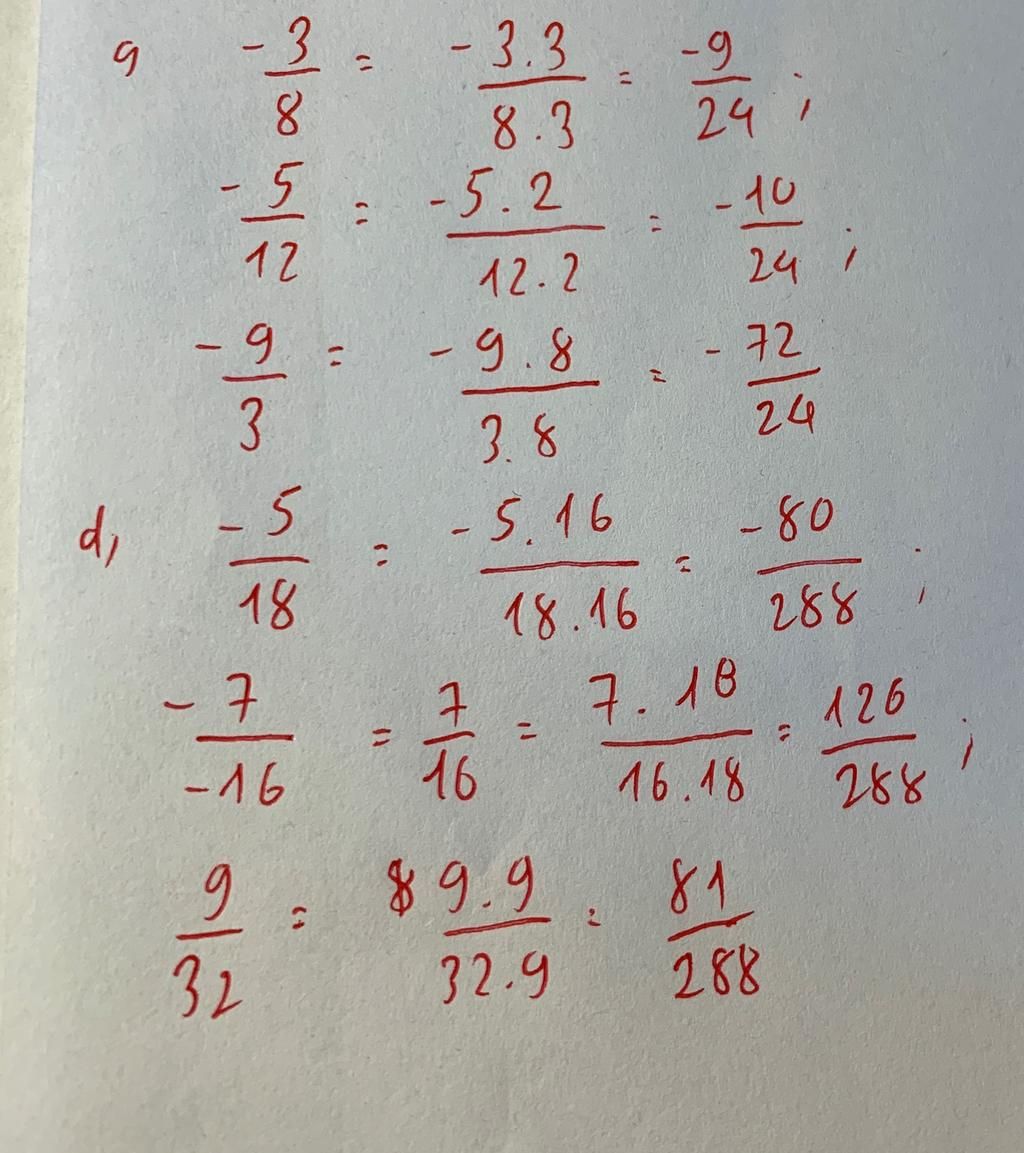 a -3/8 = -3.3/8.3 = -9/24 ;
-5/12 = -5.2/12.2 = -10/24 ;
-9/3 = -9.8/3.8 = -72/24
d, -5/18 = -5.16/18.16 = -80/288 ;
-7/-16 = 7/16 = 7.18/16.18 = 126/288 ;
9/32 = 9.9/32.9 = 81/288